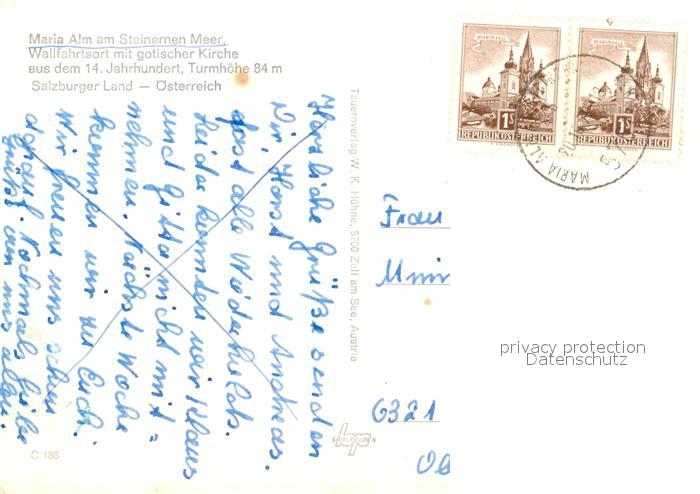 Maria Alm am Steinernen Meer,
Wallfahrtsort mit gotischer Kirche
aus dem 14. Jahrhundert, Turmhöhe 84 m
Salzburger Land — Österreich
Herzliche Grüße senden
Dir Horst und Andreas.
fast alle
Leider konnten wir Klaus
und Gitta nicht mit=
nehmen. Nächste Woche
kommen wir zu Euch.
Wir freuen uns schon
darauf. Nochmals liebe
Grüße von uns allen.
Tauernverlag W. K. Hühne, 5700 Zell am See, Austria
C 186
MARIAZELL
1S
REPUBLIK ÖSTERREICH
MARIAZELL
1S
REPUBLIK ÖSTERREICH
MARIA AL
Frau
6321
privacy protection
Datenschutz